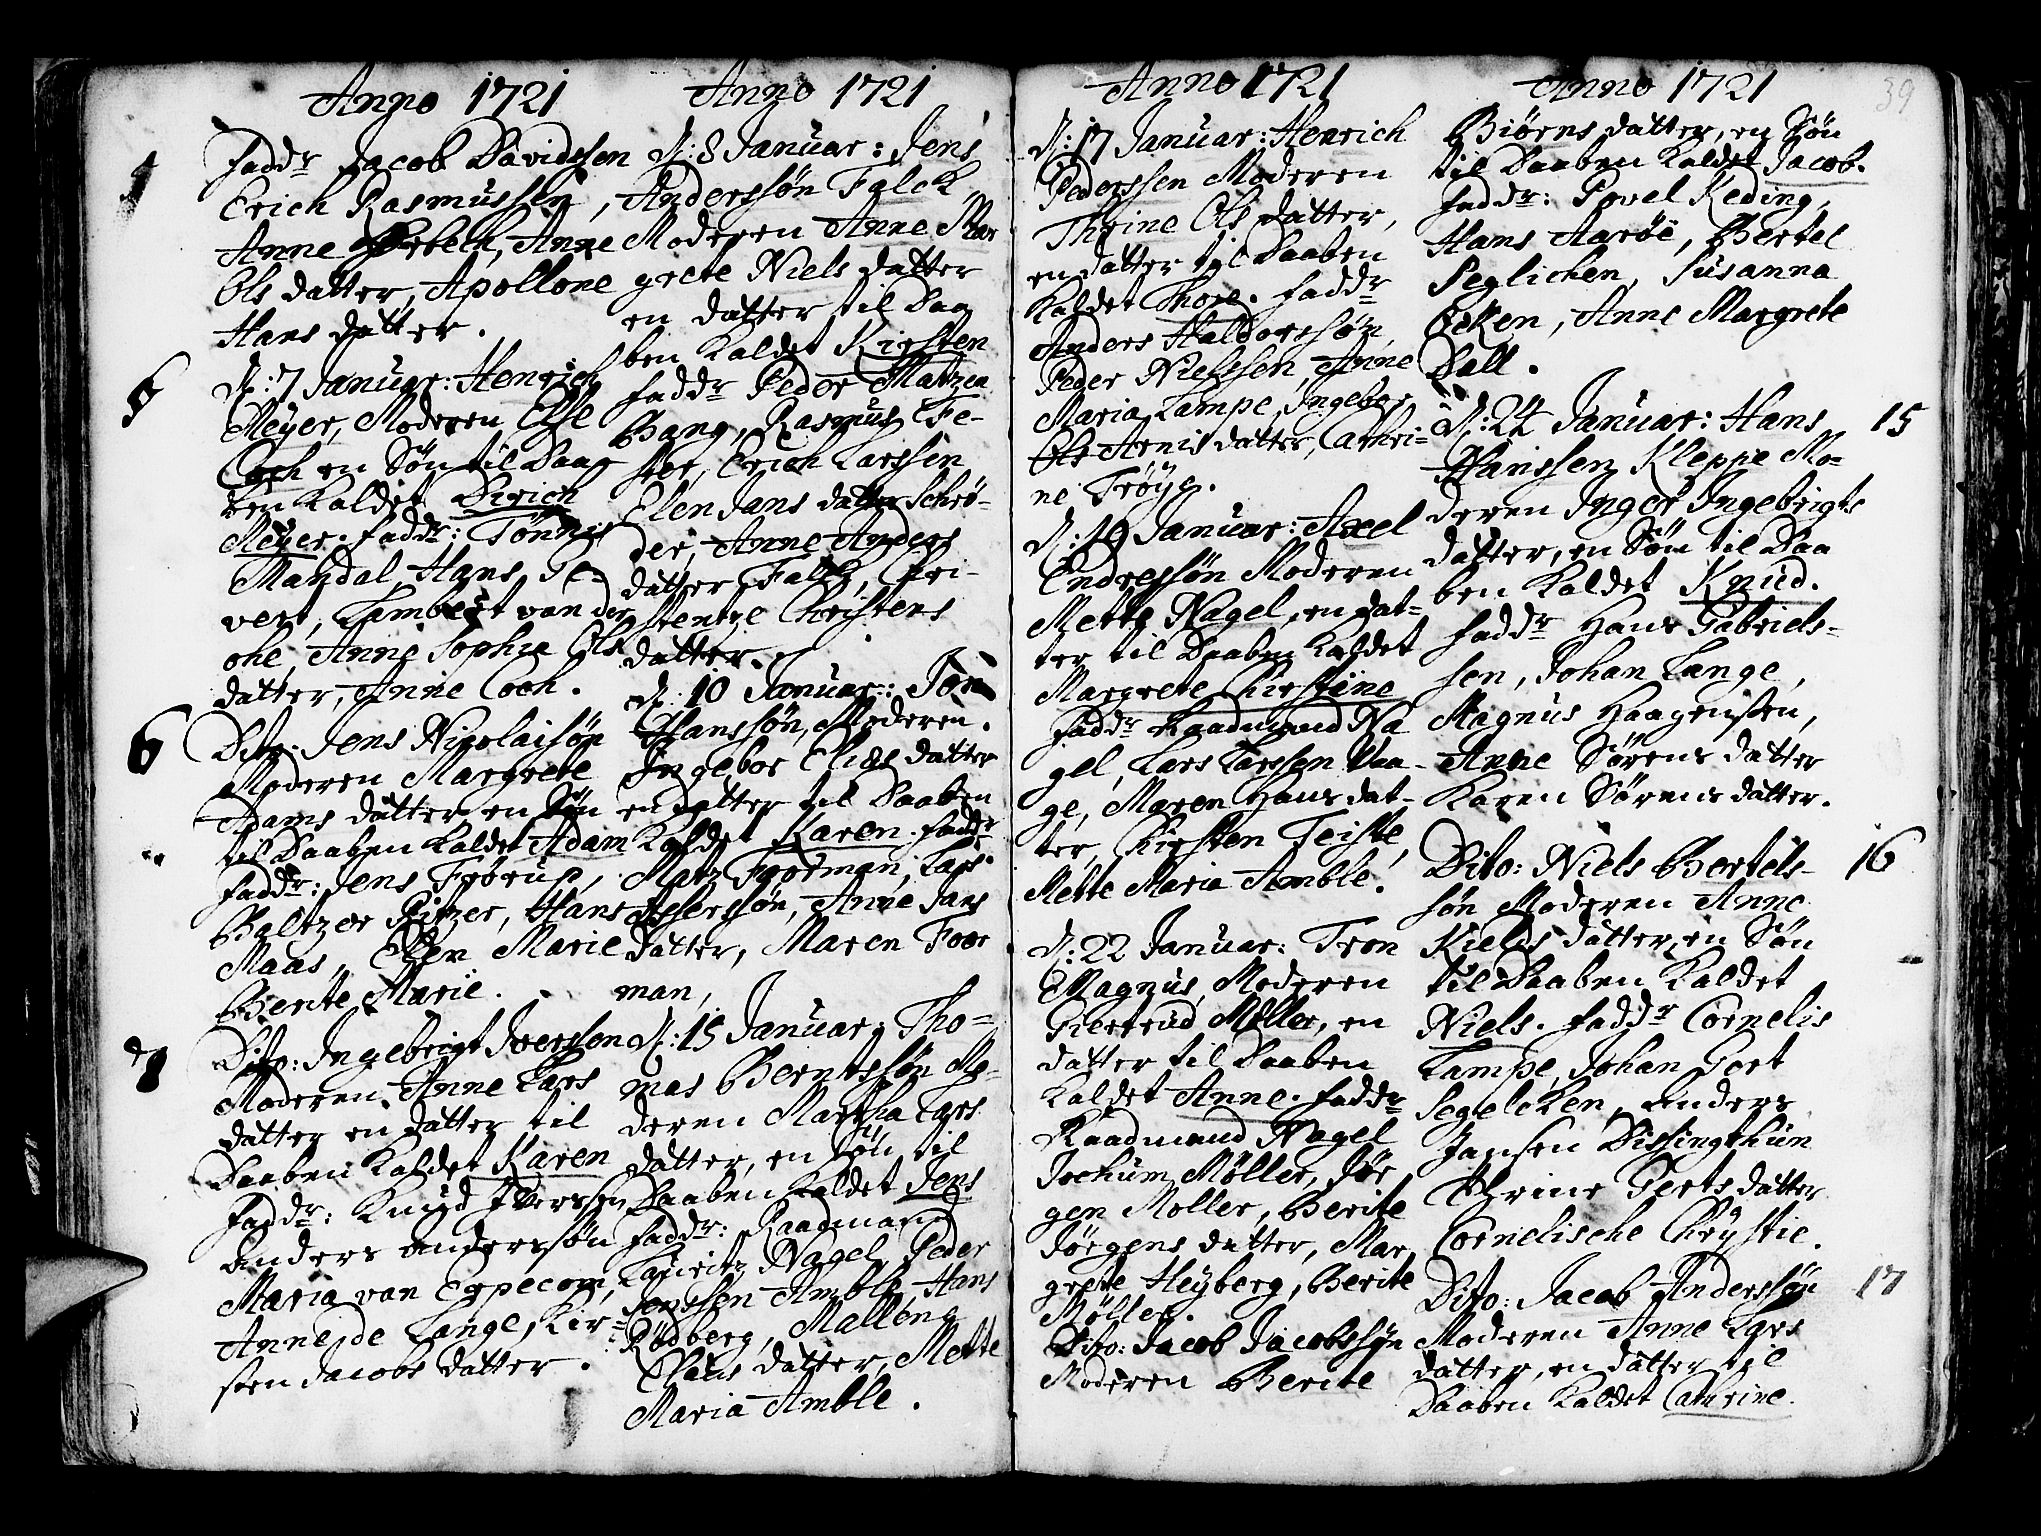 Anno 1721
4
Faddr Jacob Davidssen
Erich Rasmussen,
Anne Orbech, Anne
Ols datter, Apollone
Hans datter.
5
D: 7 Januar: Henrich
Meyer, Moderen Else
Coch en Søn til Daa
ben kaldet Dirich
Meyer. Faddr: Tønnis
Mandal, Hans Ge-
vert, Lambert van der
ohe, Anne Sophie Ols
datter, Anne Coch.
6
Dito: Jens Nicolaisøn
Moderen Margrete
Adams datter, en Søn
til Daaben kaldet Adam
Faddr: Jens Frørup,
Baltzer Ritzer, Hans
Maas, Elen Marie
Berite Marie.
7
Dito: Ingebrigt Iverssen
Moderen Anne Lars
datter en datter til
Daaben kaldet Karen
Faddr: Knud Iverssen
Anders Anderssøn
Maria van Egpecom,
Anne de Lange, Kir-
sten Jacobs datter.
Anno 1721
D: 8 Januar: Jens
Anderssøn Falck,
Moderen Anne Mar
grete Niels datter
en datter til Daa
ben kaldet Kirsten
Faddr Peder Matzen
Bang, Rasmus Fe-
ster, Erich Larssen
Elen Jans datter Schrø-
der, Anne Anders
datter Falck, Chri-
stentze Christens
datter.
D: 10 Januar: Jon
Hanssøn, Moderen
Ingebor Elias datter
en datter til Daaben
kaldet Karen. Faddr
Matz Foorman, Lars
Asserssøn, Anne Jans
datter, Maren Foor
man,
D: 15 Januar: Tho-
mas Berntssøn Mo-
deren Martha Lars
datter, en Søn til
Daaben kaldet Jens
Faddr: Raadmand
Laurits Nagel, Peder
Jenssen Amble, Hans
Rødberg, Malleng
Claus datter, Mette
Maria Amble.
Anno 1721
D: 17 Januar: Henrich
Pederssen Moderen
Thrine Ols datter,
en datter til Daaben
kaldet Thore. Faddr
Anders Haldorssøn,
Peder Nielssen, Anne
Maria Lampe, Ingebor
Ols Arnis datter, Cathri-
ne Trøye.
D: 19 Januar: Axel
Endressøn Moderen
Mette Nagel, en dat-
ter til Daaben kaldet
Margrete Kirstine
Faddr Raadmand Na
gel, Lars Larssen Waa-
ge, Maren Hans dat-
ter, Kirsten Teiste,
Mette Maria Amble.
D: 22 Januar: Tron
Magnus, Moderen
Giertrud Møller, en
datter til Daaben
kaldet Anne. Faddr
Raadmand Nagel
Jochum Møller, Jør
gen Moller, Berite
Jørgens datter, Mar
grete Heyberg, Berite
Møller.
Dito: Jacob Jacobssøn
Moderen Berite
Anno 1721
39
Biørns datter, en Søn
til Daaben kaldet Jacob.
Faddr: Povel Keding,
Hans Aarøe, Bertel
Seglichen, Susanna
Ecken, Anne Margrete
Dall.
D: 24 Januar: Hans
15
Hanssen Kleppe Mo-
deren Inger Ingebrigts
datter, en Søn til Daa
ben kaldet Knud.
Faddr Hans Gabriels-
sen, Johan Lange,
Magnus Haagenssen,
Anne Sørens datter
Karen Sørens datter.
Dito: Niels Bertels-
16
søn Moderen Anne
Niels datter, en Søn
til Daaben kaldet
Niels. Faddr Cornelis
Lampe, Johan Gort
Segelcken, Anders
Jansen Dissingthun
Thrine Geerts datter
Cornelische Chrystie.
Dito: Jacob Anderssøn
17
Moderen Anne Lars
datter, en datter til
Daaben kaldet Cathrine.